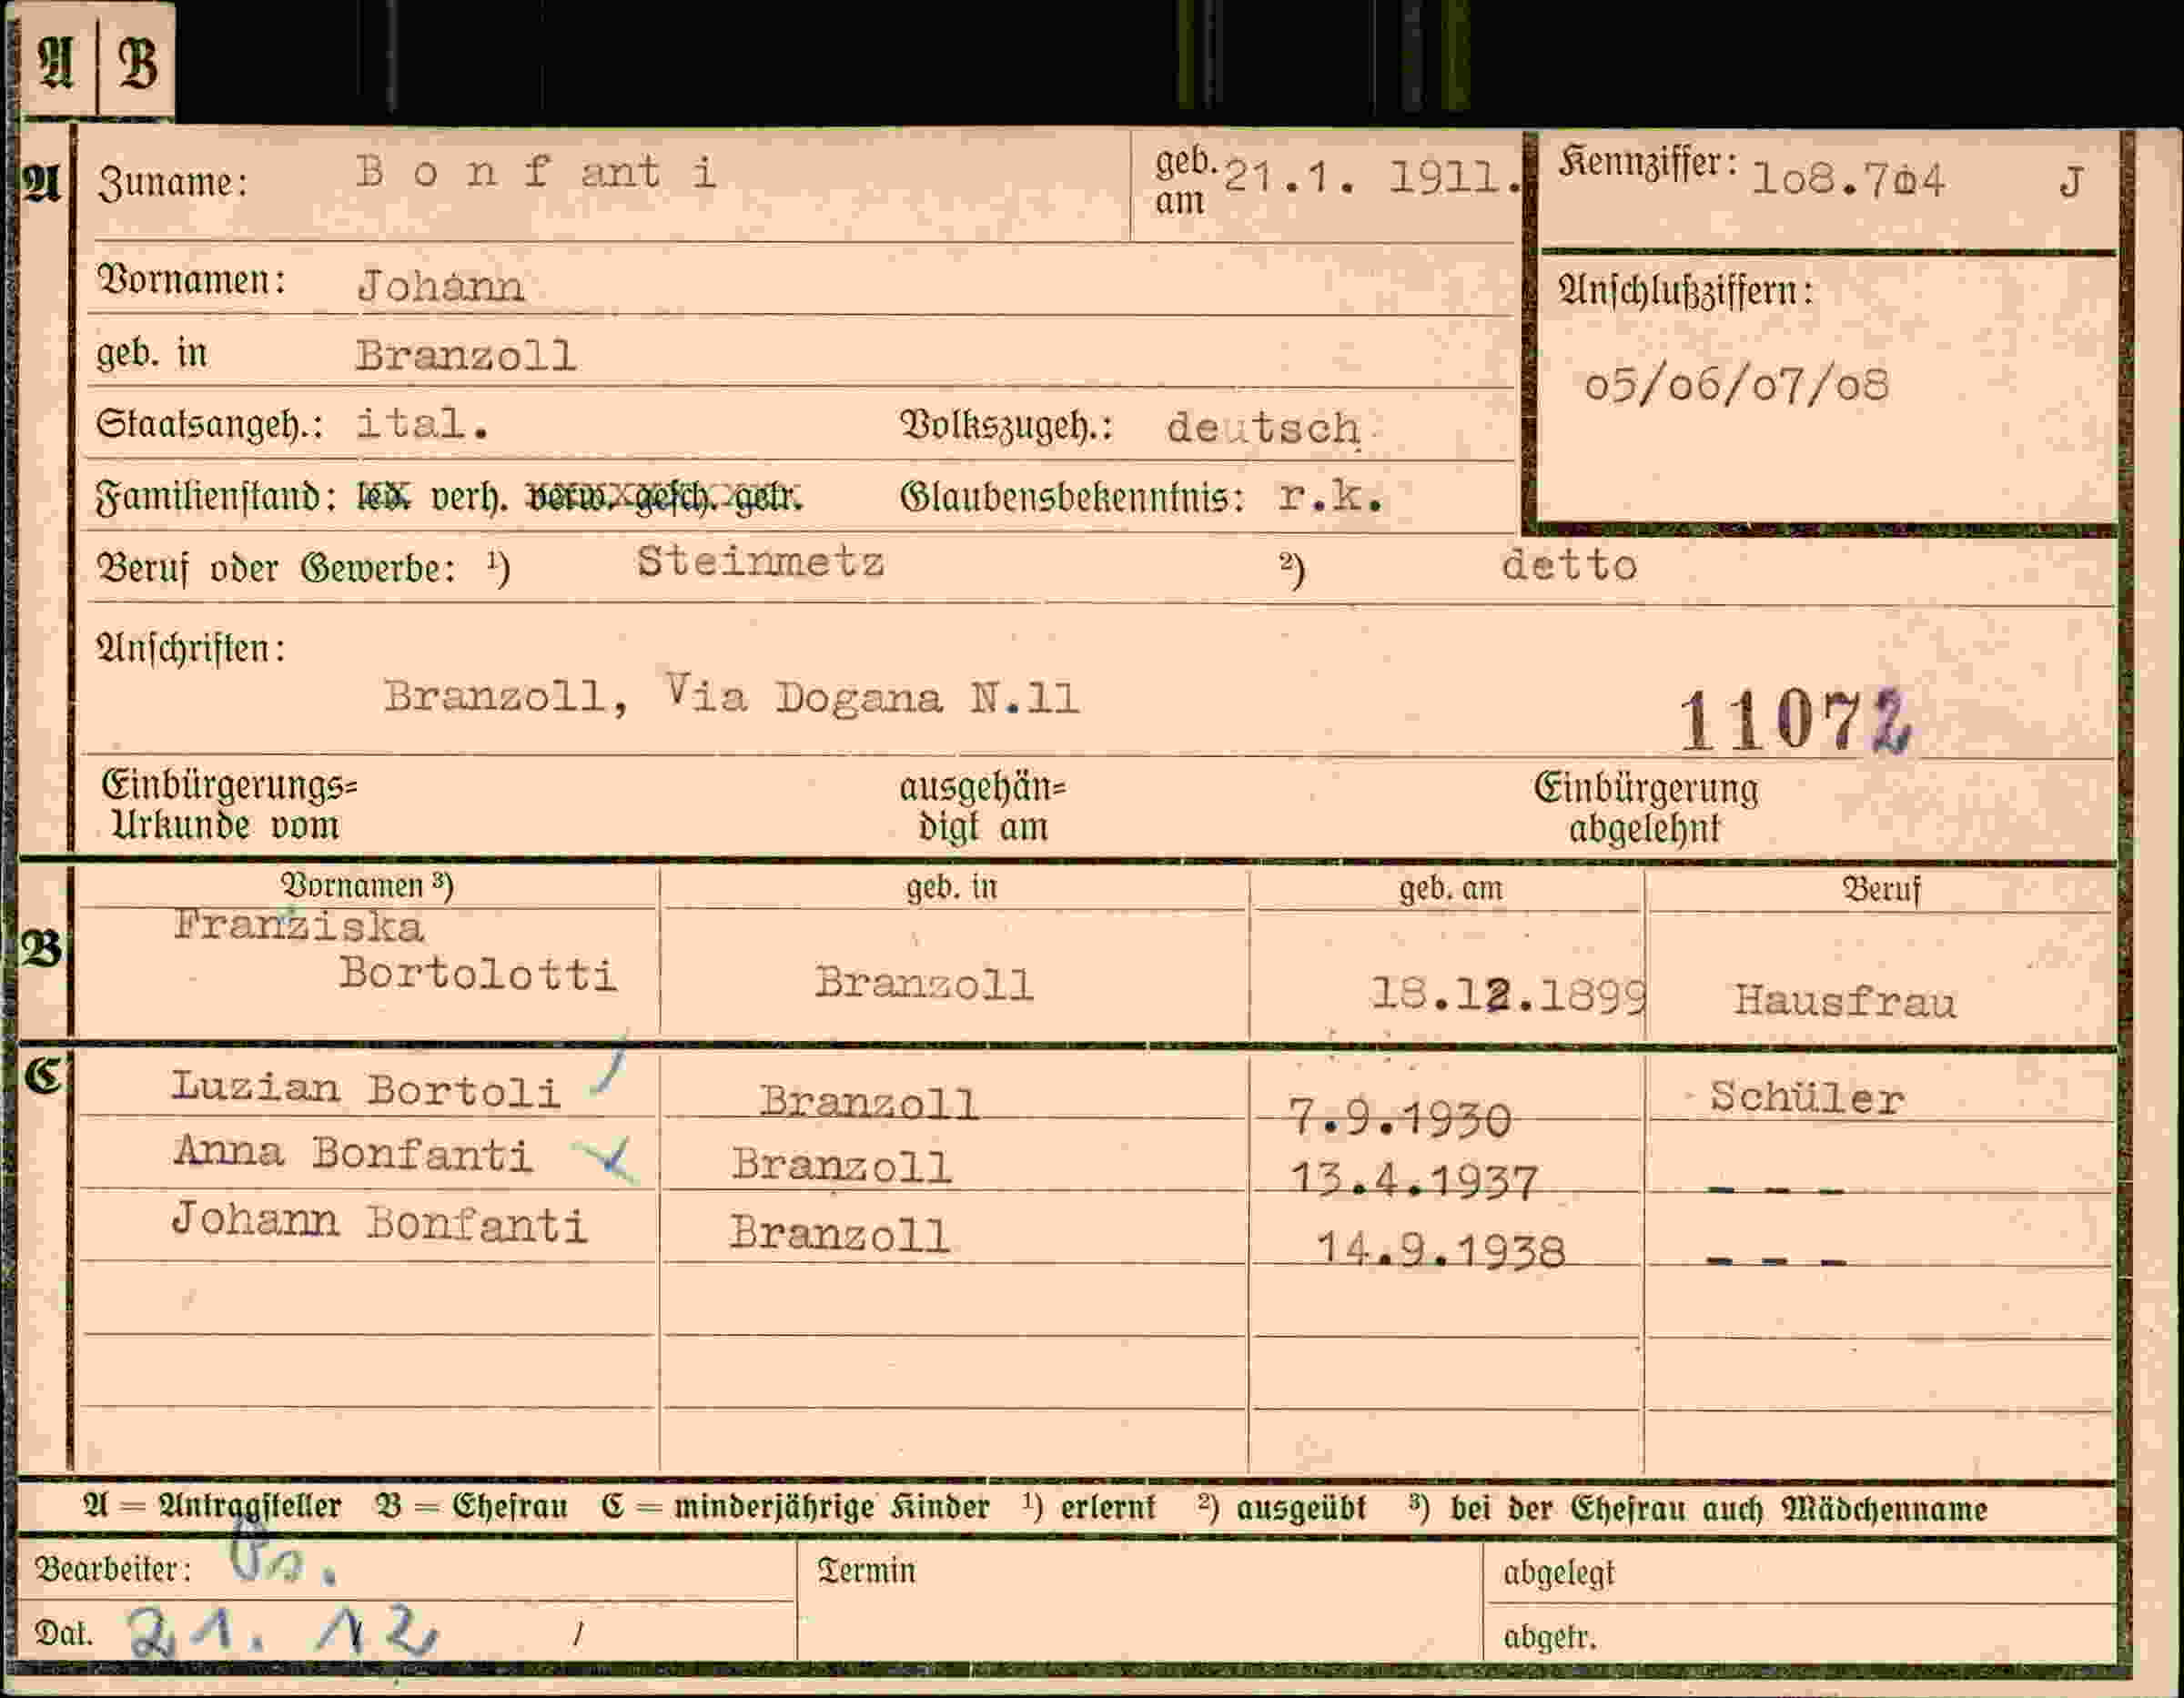 A B
A Zuname: B o n f ant i geb. am 21.1. 1911. Kennziffer: 1o8.7o4 J
Vornamen: Johann Anschlußziffern:
geb. in Branzoll o5/o6/o7/o8
Staatsangeh.: ital. Volkszugeh.: deutsch
Familienstand: led. verh. verw. gesch. getr. Glaubensbekenntnis: r.k.
Beruf oder Gewerbe: ¹) Steinmetz ²) detto
Anschriften:
Branzoll, Via Dogana N.11 11072
Einbürgerungs= ausgehän= Einbürgerung
Urkunde vom digt am abgelehnt
Vornamen ³) geb. in geb. am Beruf
B Franziska
Bortolotti Branzoll 18.12.1899 Hausfrau
C Luzian Bortoli Branzoll 7.9.1930 Schüler
Anna Bonfanti Branzoll 13.4.1937 - - -
Johann Bonfanti Branzoll 14.9.1938 - - -
A = Antragsteller B = Ehefrau C = minderjährige Kinder ¹) erlernt ²) ausgeübt ³) bei der Ehefrau auch Mädchenname
Bearbeiter: Termin abgelegt
Dat. 21. 12 / abgetr.